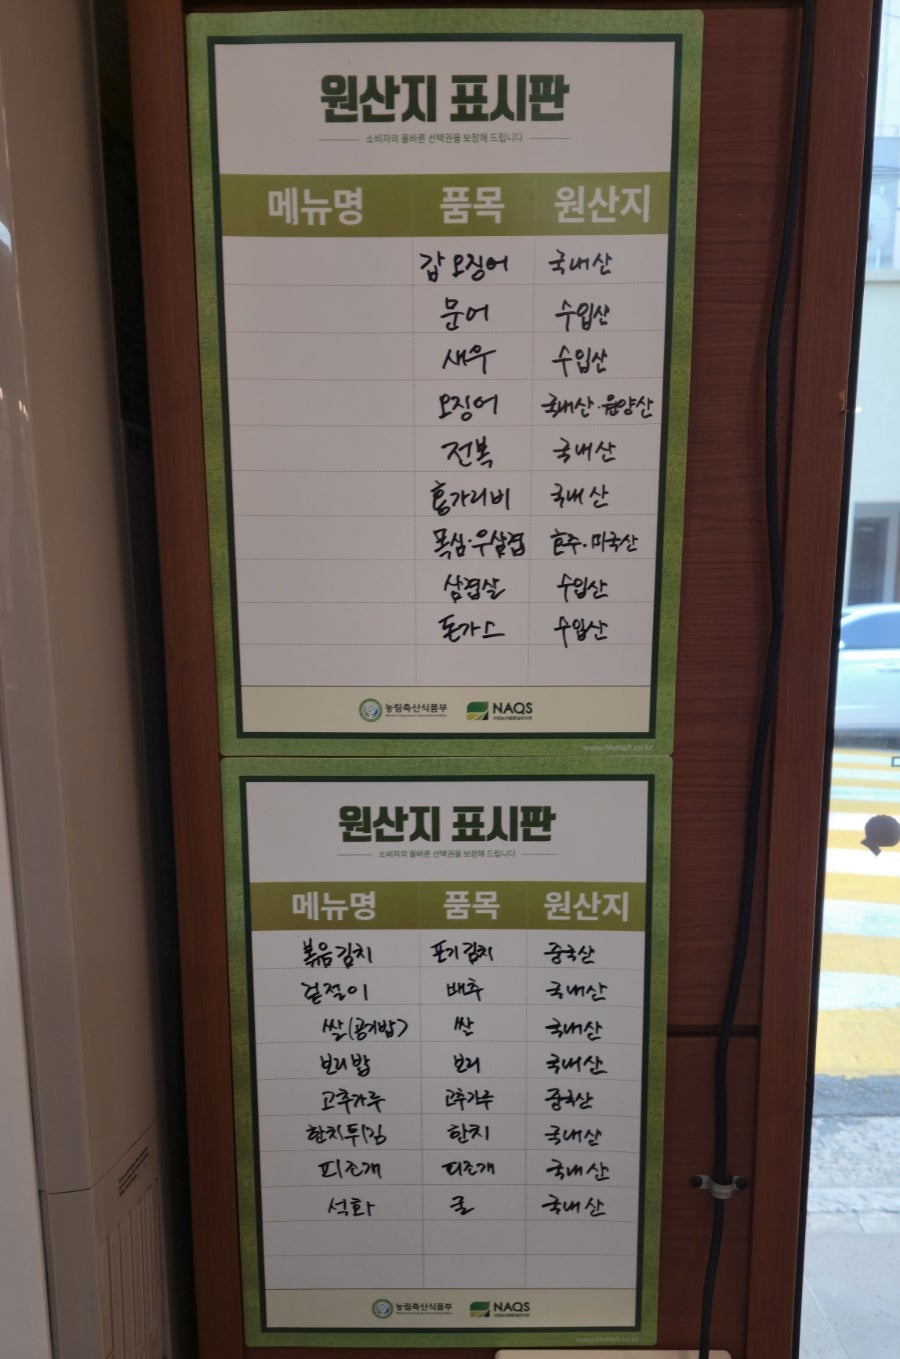 원산지 표시판
소비자의 올바른 선택권을 보장해 드립니다
메뉴명 품목 원산지
갑오징어 국내산
문어 수입산
새우 수입산
오징어 국내산·원양산
전복 국내산
홍가리비 국내산
목심·우삼겹 호주·미국산
삼겹살 수입산
돈가스 수입산
농림축산식품부 NAQS
www.hkmart.co.kr
원산지 표시판
소비자의 올바른 선택권을 보장해 드립니다
메뉴명 품목 원산지
볶음김치 포기김치 중국산
겉절이 배추 국내산
쌀(공기밥) 쌀 국내산
보리밥 보리 국내산
고추가루 고추가루 중국산
한치튀김 한치 국내산
피조개 피조개 국내산
석화 굴 국내산
농림축산식품부 NAQS
www.hkmart.co.kr